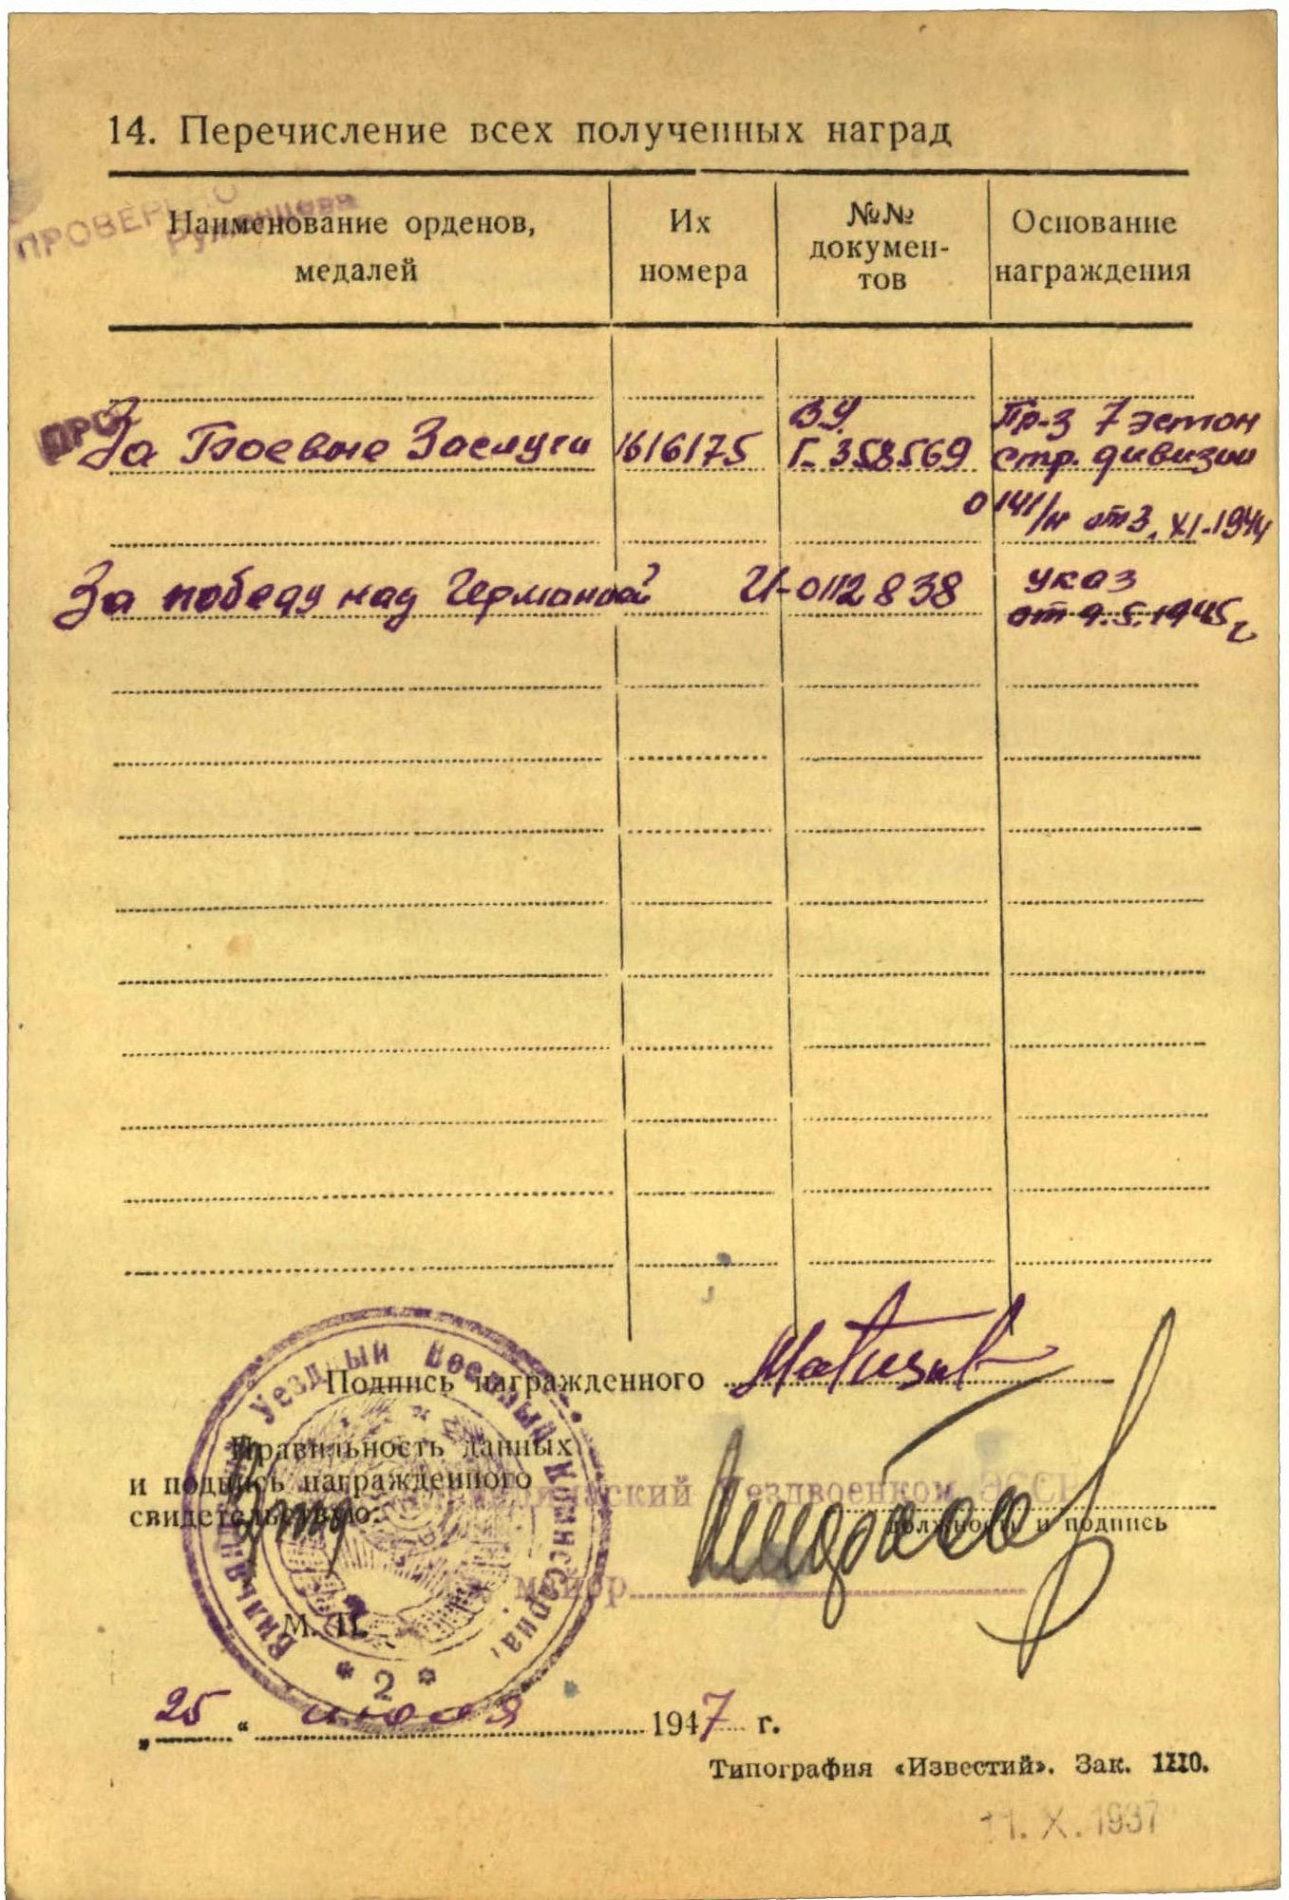 14. Перечисление всех полученных наград
ПРОВЕРЕНО
Наименование орденов,
медалей
Их
номера
№№
докумен-
тов
Основание
награждения
ПРО
За Боевые Заслуги 1616175 Г-358569
Пр-з 7 эстон
стр. дивизии
0141/н от 3.XI-1944
За победу над Германией И-0112838 указ
от 9.5.1945 г
Подпись награжденного
Правильность данных
и подпись награжденного
свидетельствую:
Уездвоенком ЭССР
должность и подпись
майор
М. П.
Вильяндиский Уездный Военный Комиссариат
* 2 *
„25“ июля 1947 г.
Типография «Известий». Зак. 1110.